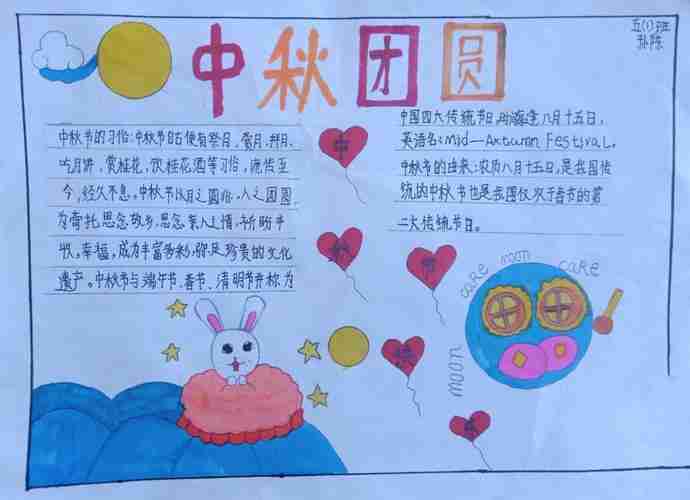 中秋团圆
五(1)班
孙陈
中秋节的习俗:中秋节自古便有祭月、赏月、拜月、
吃月饼、赏桂花、饮桂花酒等习俗,流传至
今,经久不息。中秋节以月之圆俗,人之团圆,
为寄托思念故乡,思念亲人之情,祈盼丰
收,幸福,成为丰富多彩,弥足珍贵的文化
遗产。中秋节与端午节、春节、清明节并称为
中国四大传统节日,时逢八月十五日,
英语名:Mid—Axtumn Festival。
中秋节的由来:农历八月十五日,是我国传
统的中秋节也是我国仅次于春节的第
二大传统节日。
中
秋
节
cake moon cake
moon